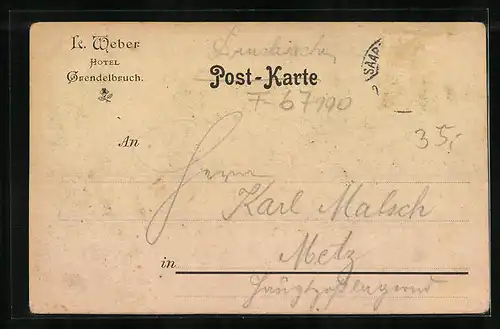 K. Weber
HOTEL
Grendelbruch.
SAAR
Post-Karte
F-67190
35,-
An
Herrn
Karl Malsch
Metz
in